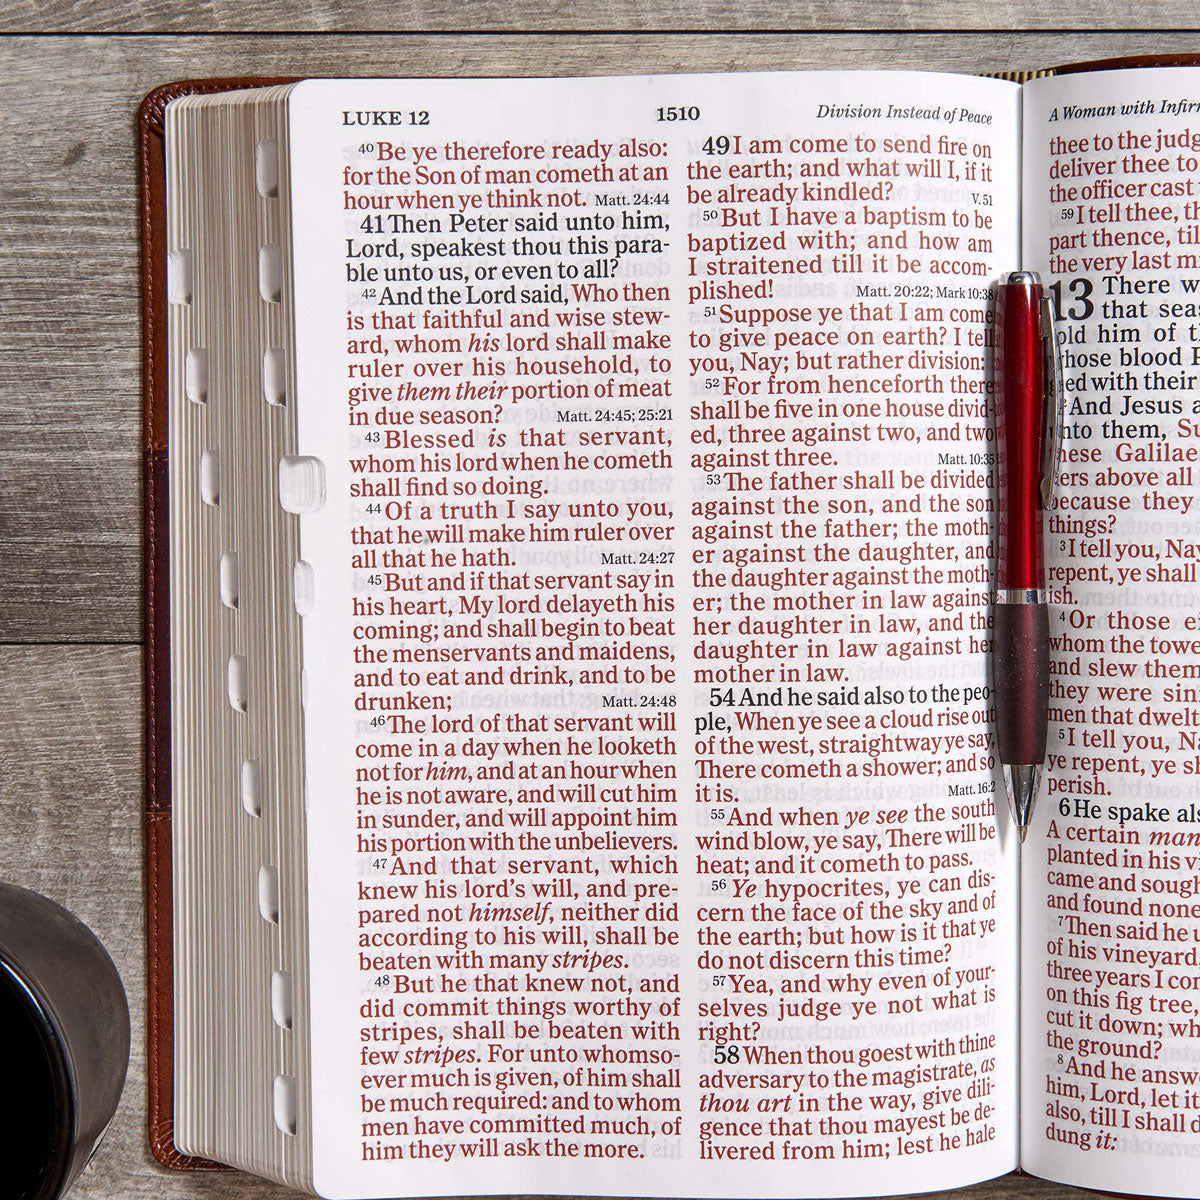 LUKE 12
1510
Division Instead of Peace
40 Be ye therefore ready also:
for the Son of man cometh at an
hour when ye think not. Matt. 24:44
41 Then Peter said unto him,
Lord, speakest thou this para-
ble unto us, or even to all?
42 And the Lord said, Who then
is that faithful and wise stew-
ard, whom his lord shall make
ruler over his household, to
give them their portion of meat
in due season? Matt. 24:45; 25:21
43 Blessed is that servant,
whom his lord when he cometh
shall find so doing.
44 Of a truth I say unto you,
that he will make him ruler over
all that he hath. Matt. 24:27
45 But and if that servant say in
his heart, My lord delayeth his
coming; and shall begin to beat
the menservants and maidens,
and to eat and drink, and to be
drunken; Matt. 24:48
46 The lord of that servant will
come in a day when he looketh
not for him, and at an hour when
he is not aware, and will cut him
in sunder, and will appoint him
his portion with the unbelievers.
47 And that servant, which
knew his lord's will, and pre-
pared not himself, neither did
according to his will, shall be
beaten with many stripes.
48 But he that knew not, and
did commit things worthy of
stripes, shall be beaten with
few stripes. For unto whomso-
ever much is given, of him shall
be much required: and to whom
men have committed much, of
him they will ask the more.
49 I am come to send fire on
the earth; and what will I, if it
be already kindled? V. 51
50 But I have a baptism to be
baptized with; and how am
I straitened till it be accom-
plished! Matt. 20:22; Mark 10:38
51 Suppose ye that I am come
to give peace on earth? I tell
you, Nay; but rather division:
52 For from henceforth there
shall be five in one house divid-
ed, three against two, and two
against three. Matt. 10:35
53 The father shall be divided
against the son, and the son
against the father; the moth-
er against the daughter, and
the daughter against the moth-
er; the mother in law against
her daughter in law, and the
daughter in law against her
mother in law.
54 And he said also to the peo-
ple, When ye see a cloud rise out
of the west, straightway ye say,
There cometh a shower; and so
it is. Matt. 16:2
55 And when ye see the south
wind blow, ye say, There will be
heat; and it cometh to pass.
56 Ye hypocrites, ye can dis-
cern the face of the sky and of
the earth; but how is it that ye
do not discern this time?
57 Yea, and why even of your-
selves judge ye not what is
right?
58 When thou goest with thine
adversary to the magistrate, as
thou art in the way, give dili-
gence that thou mayest be de-
livered from him; lest he hale
A Woman with Infir
thee to the judg
deliver thee to
the officer cast
59 I tell thee, th
part thence, til
the very last mi
13 There w
that seas
old him of t
whose blood P
ed with their
And Jesus a
nto them, Su
hese Galilae
ers above all
because they
things?
3 I tell you, Nay
repent, ye shall
ish.
4 Or those ei
whom the towe
and slew them
they were sin
men that dwelt
5 I tell you, Na
ye repent, ye sh
perish.
6 He spake als
A certain man
planted in his vi
came and sough
and found none
7 Then said he u
of his vineyard,
three years I com
on this fig tree,
cut it down; wh
the ground?
8 And he answ
him, Lord, let it
also, till I shall d
dung it: